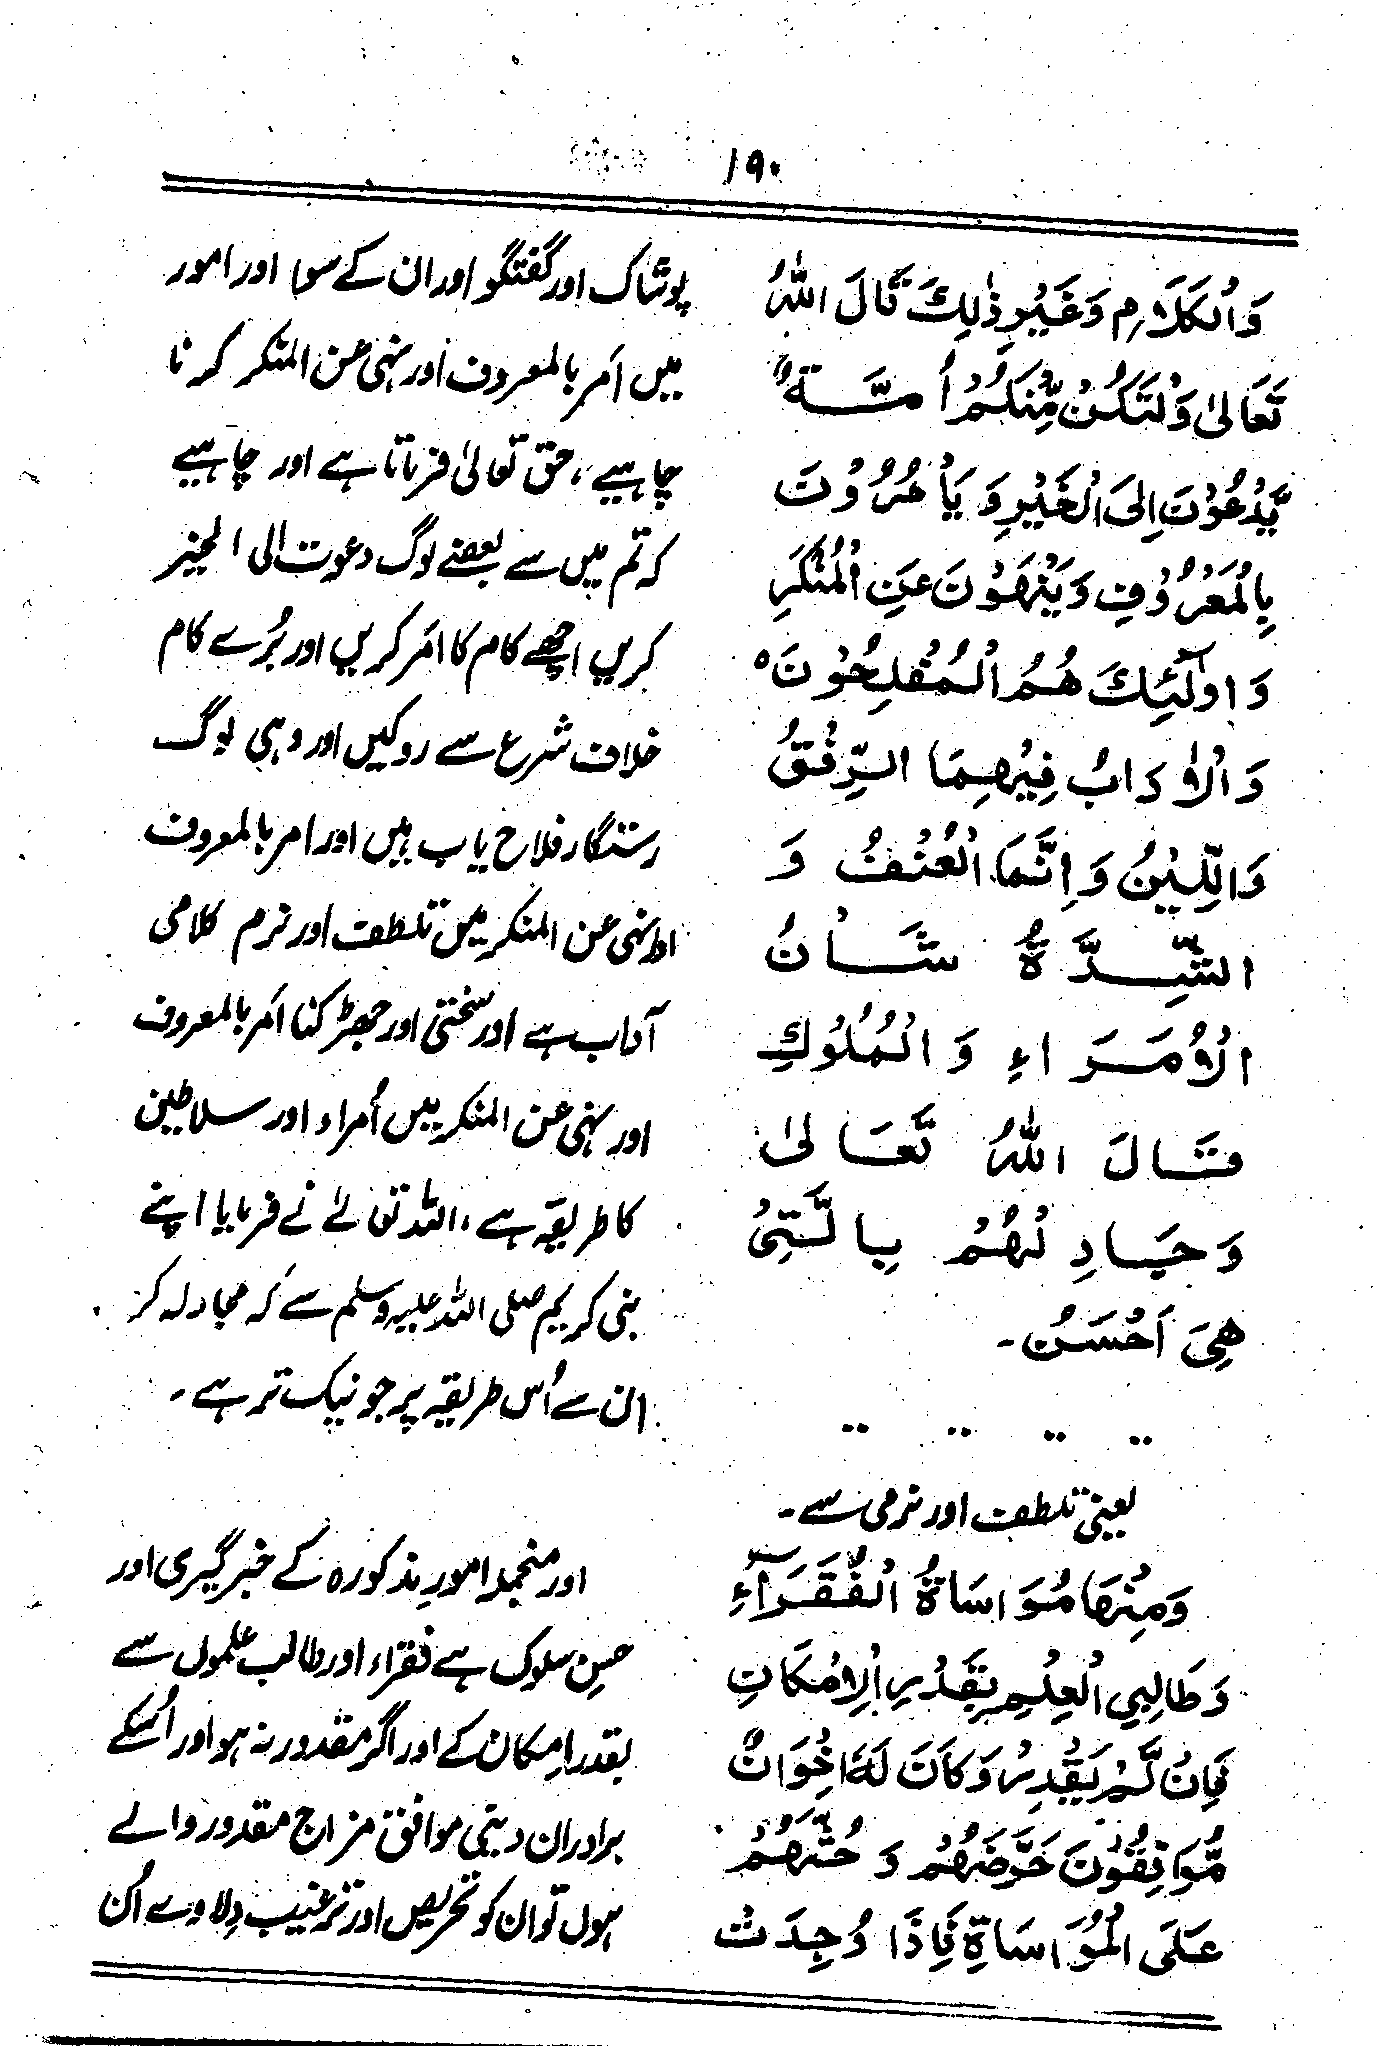 ۱۹۰
وَالْكَلَامِ وَغَيْرِ ذٰلِكَ قَالَ اللّٰهُ
تَعَالٰى وَلْتَكُنْ مِّنْكُمْ أُمَّةٌ
يَّدْعُوْنَ اِلَى الْخَيْرِ وَ يَأْمُرُوْنَ
بِالْمَعْرُوْفِ وَيَنْهَوْنَ عَنِ الْمُنْكَرِ
وَاُولٰٓئِكَ هُمُ الْمُفْلِحُوْنَ ه
وَالْاٰدَابُ فِيْهِمَا الرِّفْقُ
وَاللِّيْنُ وَاِنَّمَا الْعُنْفُ وَ
الشِّدَّةُ شَانُ
الْاُمَرَاءِ وَ الْمُلُوْكِ
قَالَ اللّٰهُ تَعَالٰى
وَجَادِلْهُمْ بِالَّتِىْ
هِىَ اَحْسَنُ ۔
پوشاک اور گفتگو اور ان کے سوا اور امور
میں امر بالمعروف اور نہی عن المنکر کرنا
چاہیے، حق تعالیٰ فرماتا ہے اور چاہیے
کہ تم میں سے بعضے لوگ دعوت الی الخیر
کریں اچھے کام کا امر کریں اور بُرے کام
خلاف شرع سے روکیں اور وہی لوگ
رستگار فلاح یاب ہیں اور امر بالمعروف
اور نہی عن المنکر میں تلطف اور نرم کلامی
آداب ہے اور سختی اور جھڑکنا امر بالمعروف
اور نہی عن المنکر میں اُمراء اور سلاطین
کا طریقہ ہے، اللہ تعالےٰ نے فرمایا اپنے
نبی کریم صلی اللہ علیہ وسلم سے کہ مجادلہ کر
ان سے اُس طریقہ پر جو نیک تر ہے ۔
یعنی تلطف اور نرمی سے ۔
وَمِنْهَا مُوَاسَاةُ الْفُقَرَآءِ
وَطَالِبِي الْعِلْمِ بِقَدْرِ الْاِمْكَانِ
فَاِنْ لَّمْ يَقْدِرْ وَكَانَ لَهٗ اِخْوَانٌ
مُّوَافِقُوْنَ حَرَّضَهُمْ وَ حَثَّهُمْ
عَلَى الْمُوَاسَاةِ فَاِذَا وُجِدَتْ
اور منجملہ امورِ مذکورہ کے خبر گیری اور
حسنِ سلوک ہے فقراء اور طالب علموں سے
بقدر امکان کے اور اگر مقدور نہ ہو اور اُسکے
برادران دینی موافق مزاج مقدور والے
ہوں تو ان کو تحریص اور ترغیب دلاوے اُن